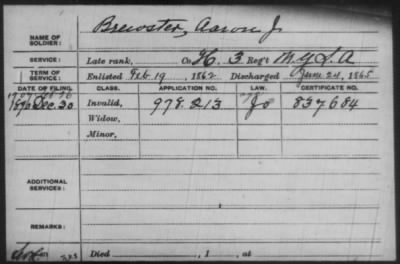 NAME OF SOLDIER: Brewster, Aaron J.
SERVICE: Late rank, Co. H. 3 Reg't N.Y.L.A
TERM OF SERVICE: Enlisted Feb. 19, 1862 Discharged June 24, 1865
DATE OF FILING. CLASS. APPLICATION NO. LAW. CERTIFICATE NO.
1890 Dec. 30 Invalid, 979.213 837684
Widow,
Minor,
ADDITIONAL SERVICES:
REMARKS:
Died , 1 , at